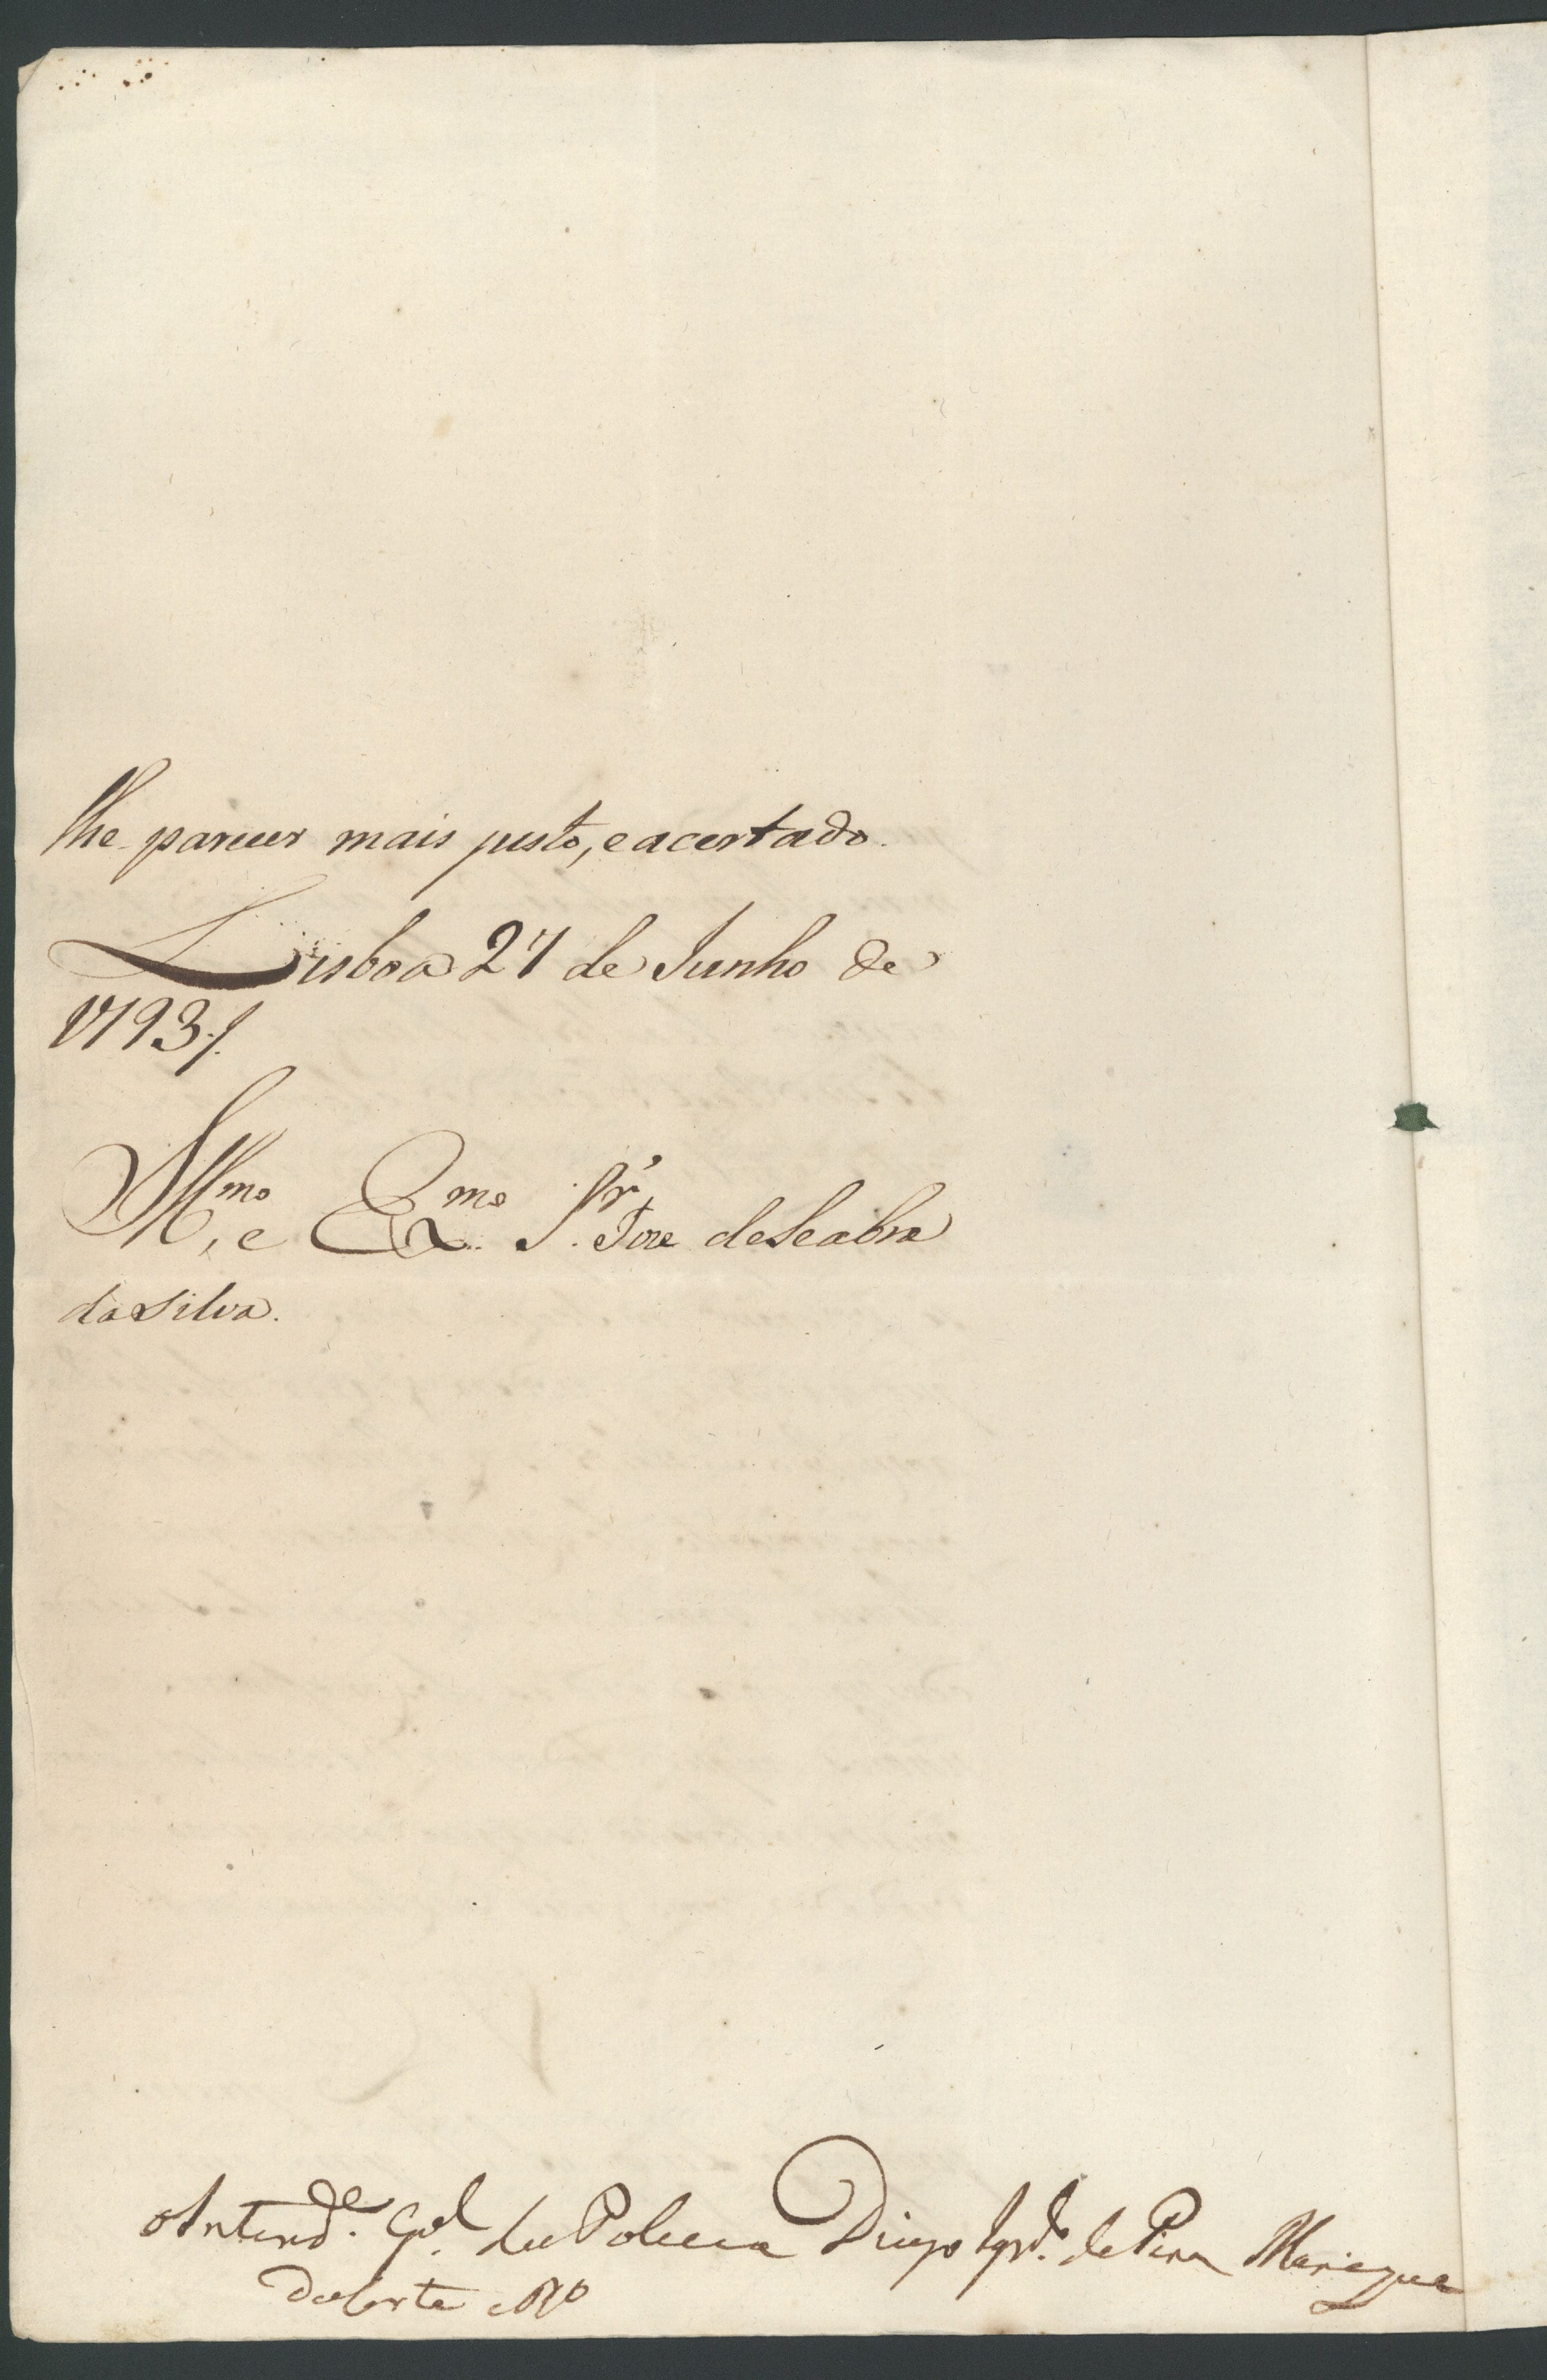 lhe parecer mais justo, e acertado.
Lisboa 27 de Junho de
1793 ./.
Illmo, e Exmo Sr. Jose de Seabra
da Silva.
o Intend.e G.el da Policia Diogo Ign.o de Pina Manique
da Corte e Rno